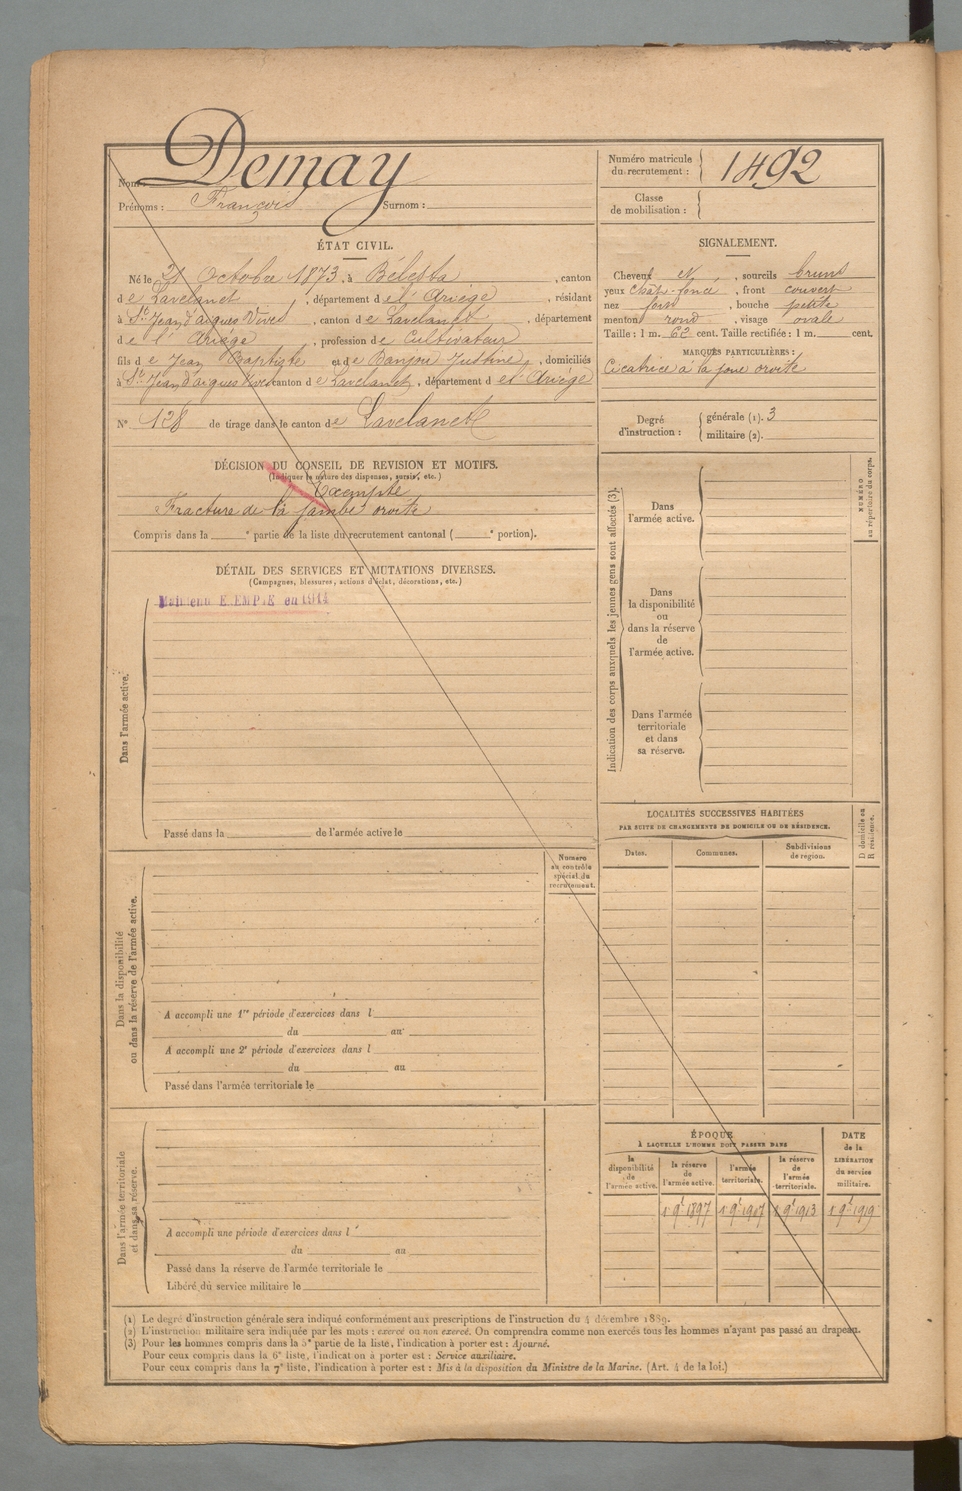 Nom : Demay
Prénoms : François Surnom :
Numéro matricule du recrutement : 1492
Classe de mobilisation :
ÉTAT CIVIL.
Né le 21 Octobre 1873, à Bélesta, canton
de Lavelanet, département de l'Ariège, résidant
à St Jean d'aigues Vives, canton de Lavelanet, département
de l'Ariège, profession de Cultivateur
fils de Jean Baptiste et de Banjou Justine, domiciliés
à St Jean d'aigues Vives canton de Lavelanet, département de l'Ariège
N° 128 de tirage dans le canton de Lavelanet
SIGNALEMENT.
Cheveux et, sourcils bruns
yeux chât-foncé, front couvert
nez fort, bouche petite
menton rond, visage ovale
Taille : 1 m. 62 cent. Taille rectifiée : 1 m. cent.
MARQUES PARTICULIÈRES :
Cicatrice à la joue droite
Degré d'instruction : générale (1). 3
militaire (2).
DÉCISION DU CONSEIL DE REVISION ET MOTIFS.
(Indiquer la nature des dispenses, sursis, etc.)
Exempté
Fracture de la jambe droite
Compris dans la e partie de la liste du recrutement cantonal ( e portion).
DÉTAIL DES SERVICES ET MUTATIONS DIVERSES.
(Campagnes, blessures, actions d'éclat, décorations, etc.)
Maintenu EXEMPTÉ en 1914
Dans l'armée active.
Passé dans la de l'armée active le
Numéro au contrôle spécial du recrutement.
Dans la disponibilité
ou dans la réserve de l'armée active.
A accompli une 1re période d'exercices dans l
du au
A accompli une 2e période d'exercices dans l
du au
Passé dans l'armée territoriale le
Dans l'armée territoriale
et dans sa réserve.
A accompli une période d'exercices dans l
du au
Passé dans la réserve de l'armée territoriale le
Libéré du service militaire le
Indication des corps auxquels les jeunes gens sont affectés (3).
Dans
l'armée active.
Dans
la disponibilité
ou
dans la réserve
de
l'armée active.
Dans l'armée
territoriale
et dans
sa réserve.
NUMÉRO
au répertoire du corps.
LOCALITÉS SUCCESSIVES HABITÉES
PAR SUITE DE CHANGEMENTS DE DOMICILE OU DE RÉSIDENCE.
Dates. Communes. Subdivisions de région.
D domicile ou
R résidence.
ÉPOQUE
À LAQUELLE L'HOMME DOIT PASSER DANS
DATE de la LIBÉRATION du service militaire.
la disponibilité de l'armée active.
la réserve de l'armée active.
l'armée territoriale.
la réserve de l'armée territoriale.
1 9bre 1897 1 9bre 1907 1 9bre 1913 1 9bre 1919
(1) Le degré d'instruction générale sera indiqué conformément aux prescriptions de l'instruction du 4 décembre 1889.
(2) L'instruction militaire sera indiquée par les mots : exercé ou non exercé. On comprendra comme non exercés tous les hommes n'ayant pas passé au drapeau.
(3) Pour les hommes compris dans la 5e partie de la liste, l'indication à porter est : Ajourné.
Pour ceux compris dans la 6e liste, l'indication à porter est : Service auxiliaire.
Pour ceux compris dans la 7e liste, l'indication à porter est : Mis à la disposition du Ministre de la Marine. (Art. 4 de la loi.)